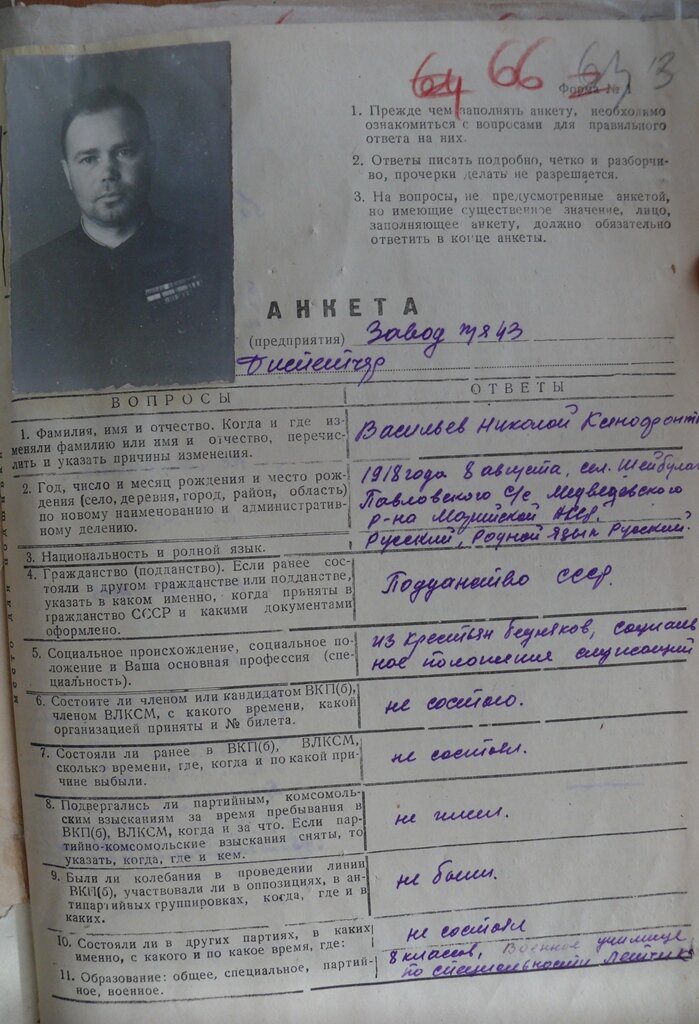 64 66 64 3
Форма № 1
1. Прежде чем заполнять анкету, необходимо
ознакомиться с вопросами для правильного
ответа на них.
2. Ответы писать подробно, четко и разборчи-
во, прочерки делать не разрешается.
3. На вопросы, не предусмотренные анкетой,
но имеющие существенное значение, лицо,
заполняющее анкету, должно обязательно
ответить в конце анкеты.
АНКЕТА
(предприятия) Завод п/я 43
Диспетчер
ВОПРОСЫ
ОТВЕТЫ
1. Фамилия, имя и отчество. Когда и где из-
меняли фамилию или имя и отчество, перечис-
лить и указать причины изменения.
Васильев Николай Ксенофонт
2. Год, число и месяц рождения и место рож-
дения (село, деревня, город, район, область)
по новому наименованию и административ-
ному делению.
1918 года 8 августа, сел. Шейбула
Павловского с/с Медведевского
р-на Марийской АССР.
3. Национальность и родной язык.
Русский, Родной язык Русский.
4. Гражданство (подданство). Если ранее сос-
тояли в другом гражданстве или подданстве,
указать в каком именно, когда приняты в
гражданство СССР и какими документами
оформлено.
Подданство СССР.
5. Социальное происхождение, социальное по-
ложение и Ваша основная профессия (спе-
циальность).
из крестьян бедняков, социаль
ное положение служащий
6. Состоите ли членом или кандидатом ВКП(б),
членом ВЛКСМ, с какого времени, какой
организацией приняты и № билета.
не состою.
7. Состояли ли ранее в ВКП(б), ВЛКСМ,
сколько времени, где, когда и по какой при-
чине выбыли.
не состоял.
8. Подвергались ли партийным, комсомоль-
ским взысканиям за время пребывания в
ВКП(б), ВЛКСМ, когда и за что. Если пар-
тийно-комсомольские взыскания сняты, то
указать, когда, где и кем.
не имел.
9. Были ли колебания в проведении линии
ВКП(б), участвовали ли в оппозициях, в ан-
типартийных группировках, когда, где и в
каких.
не были.
10. Состояли ли в других партиях, в каких
именно, с какого и по какое время, где:
не состоял
11. Образование: общее, специальное, партий-
ное, военное.
8 классов, Военное училище
по специальности Летчик
место для подшивки